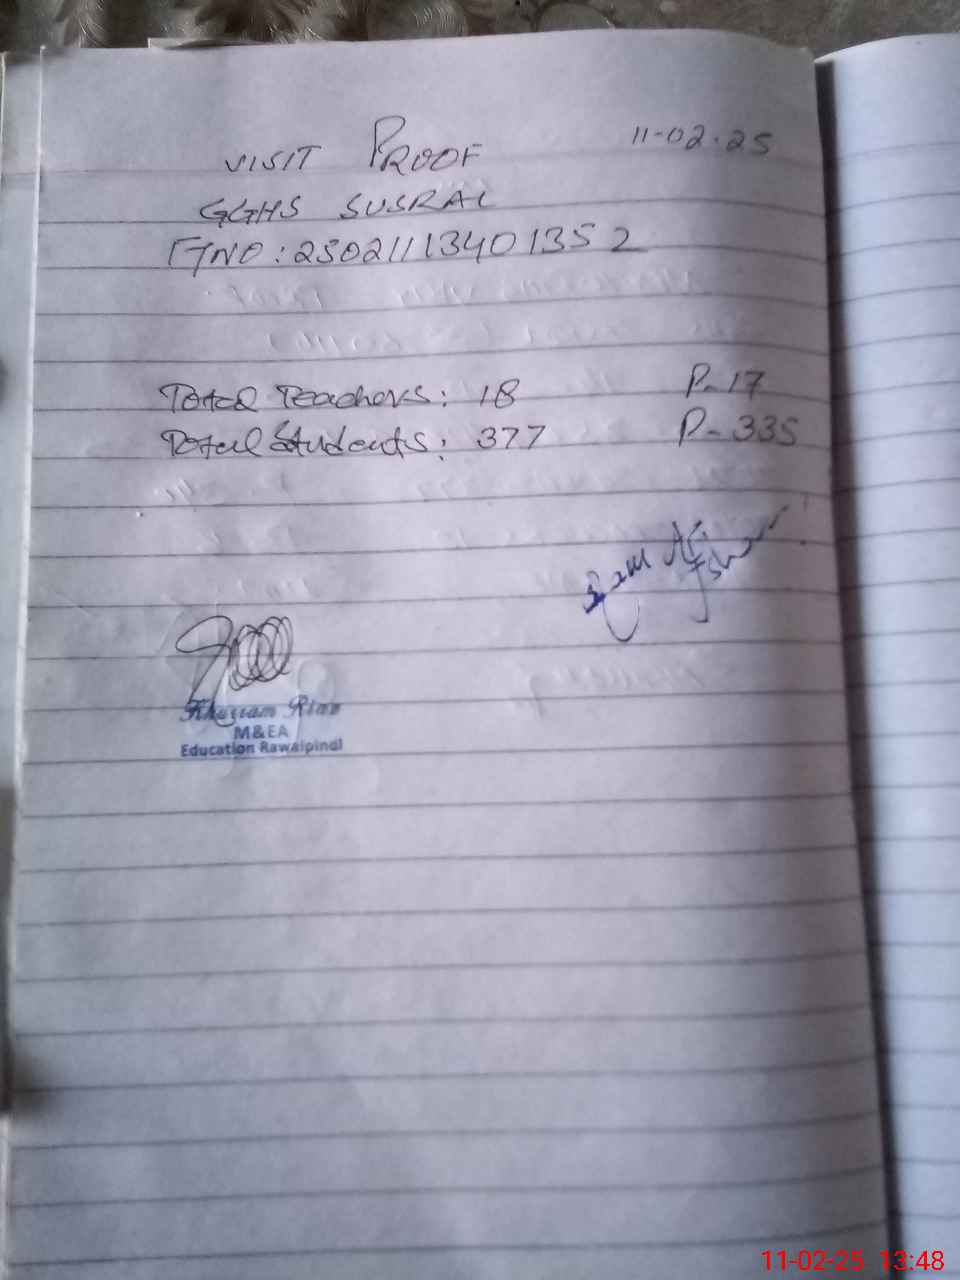 VISIT PROOF 11-02-25
GGHS SUSRAL
GNO: 25021113401352
Total Teachers: 18 P-17
Total Students: 377 P-335
Afshan
Khurram Riaz
M&EA
Education Rawalpindi
11-02-25 13:48